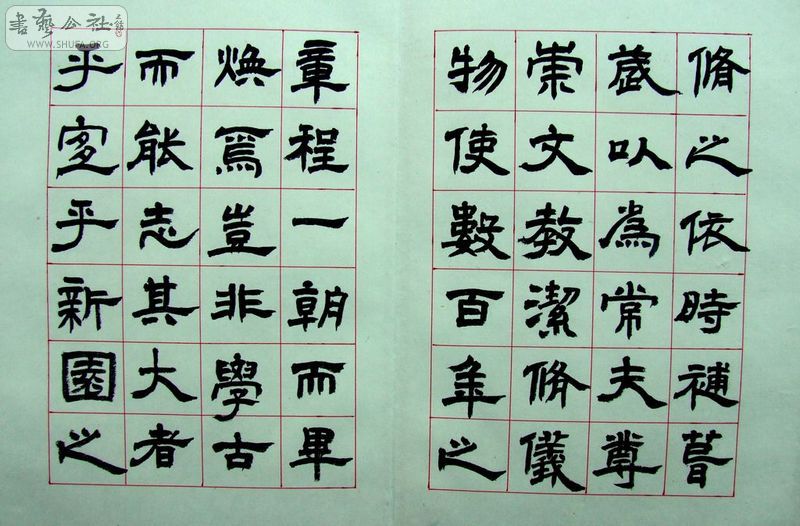 書藝公社
WWW.SHUFA.ORG
脩之依時補葺
歲以為常夫尊
崇文教潔脩儀
物使數百年之
章程一朝而畢
煥焉豈非學古
而能志其大者
乎乎新園之